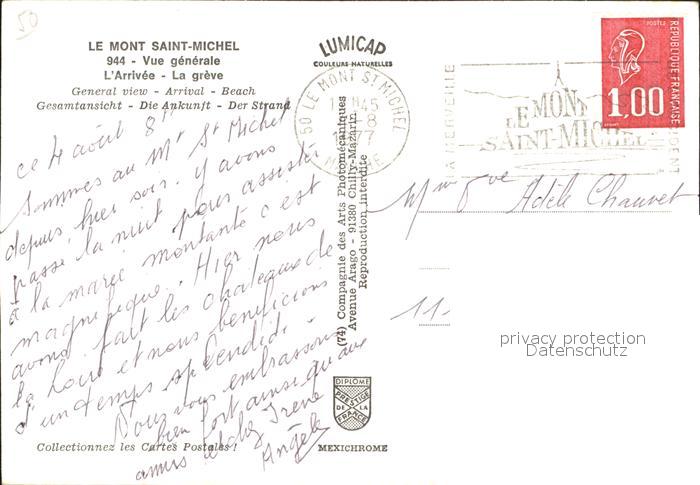 50
LE MONT SAINT-MICHEL
944 - Vue générale
L'Arrivée - La grève
General view - Arrival - Beach
Gesamtansicht - Die Ankunft - Der Strand
LUMICAP
COULEURS NATURELLES
50 LE MONT ST MICHEL
45
-8
77
LA MERVEILLE
LE MONT
SAINT-MICHEL
POSTES
RÉPUBLIQUE FRANÇAISE
1,00
ce 4 août 8h
Sommes au Mt St Michel
depuis hier soir. y avons
passé la nuit pour assister
à la marée montante c'est
magnifique. Hier nous
avons fait les chateaux de
la Loire et nous bénéficions
d'un temps splendide.
Nous vous embrassons
bien fort ainsi qu'aux
amis et chez Irène
Angèle
Mme Vve Adèle Chauvet
11-
(74) Compagnie des Arts Photomécaniques
Avenue Arago - 91380 Chilly-Mazarin
Reproduction interdite
privacy protection
Datenschutz
DIPLOME
PRESTIGE
DE LA
FRANCE
Collectionnez les Cartes Postales !
MEXICHROME